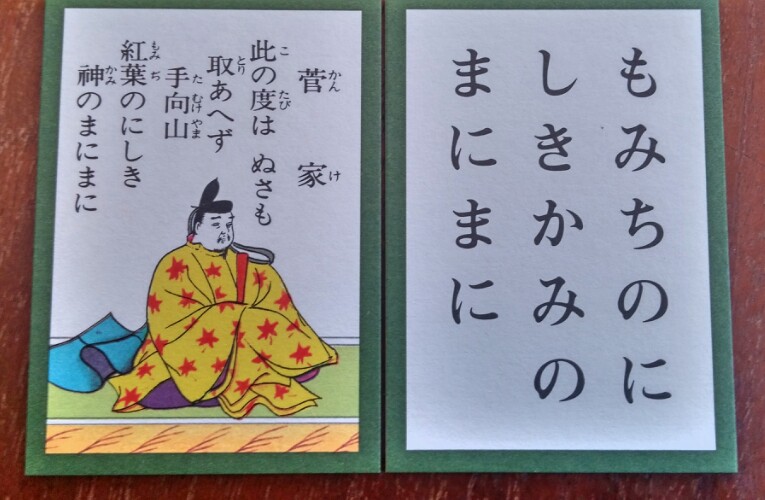 菅家
此の度は ぬさも
取あへず
手向山
紅葉のにしき
神のまにまに
かんけ
こ たび
とり
た むけ やま
もみ ぢ
かみ
もみちのに
しきかみの
まにまに